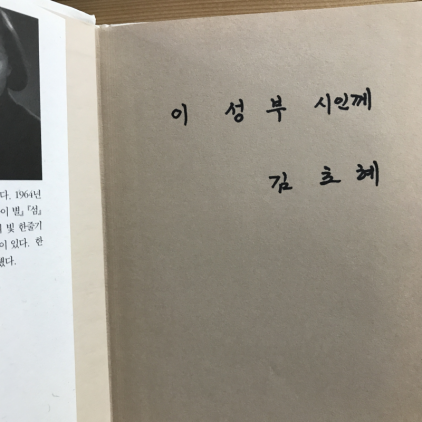 이 성 부 시인께
김 초 혜
다. 1964년
이 별』 『섬』
빛 한줄기
이 있다. 한
했다.